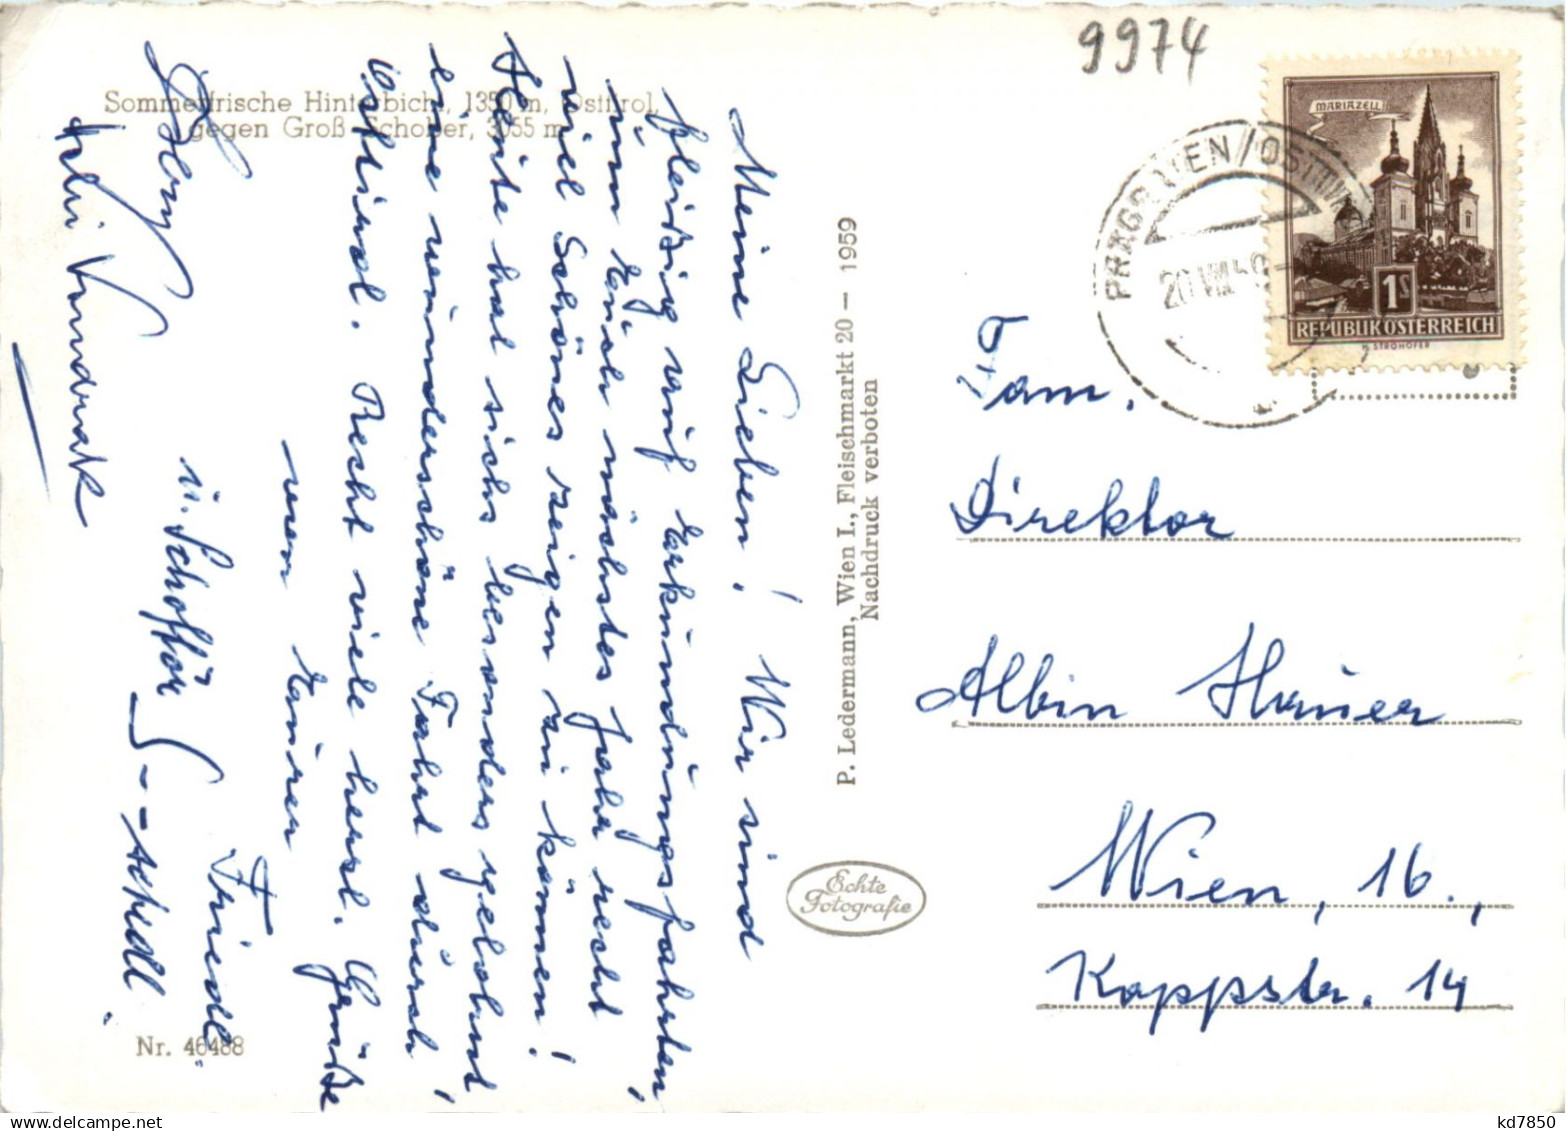 9974
Sommerfrische Hinterbichl, 1350 m, Osttirol,
gegen Groß Schober, 3055 m
MARIAZELL
1 S
REPUBLIK ÖSTERREICH
STROHOFER
PRÄGRATEN / OSTTIROL
20.VIII.59
Meine Lieben! Wir sind
fleißig auf Erkundungsfahrten,
um Euch nächstes Jahr recht
viel Schönes zeigen zu können!
Heute hat sichs besonders gelohnt
eine wunderschöne Fahrt durch
Osttirol. Recht viele herzl. Grüße
von Euren
Friedl
u. Schofför
P. Ledermann, Wien I., Fleischmarkt 20 — 1959
Nachdruck verboten
Echte
Fotografie
Nr. 46488
Fam.
Direktor
Albin Hauer
Wien, 16.,
Koppstr. 14
kd7850